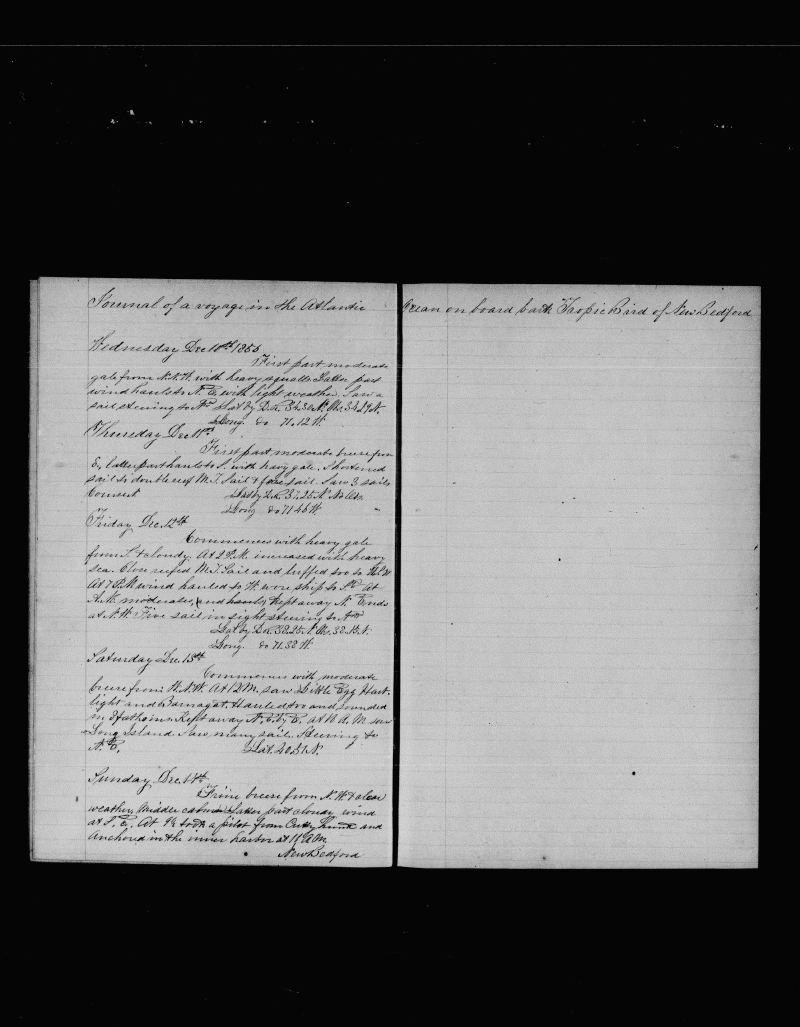 Journal of a voyage in the Atlantic
Ocean on board bark Tropic Bird of New Bedford
Wednesday Dec 10th 1856
First part moderate
gale from N.N.W. with heavy squalls Latter part
wind hauls to N.E. with light weather. Saw a
sail steering to Nd Lat by D.R. 34.30 N. Obs. 34.27 N.
Long. do 71.12 W.
Thursday Dec 11th
First part moderate breeze from
E, latter part hauls to S. with heavy gale. Shortened
sail to double reef M.T. Sail & fore sail. Saw 3 sails
Lat by D.R. 37.25 N. No Obs.
Long do 71 46 W. "
Friday Dec. 12th
Commences with heavy gale
from S. & cloudy. At 2 P.M. increased with heavy
sea. Close reefed M.T. Sail and luffed too to
At 7 P.M wind hauled to W. wore ship to Sd At
A.M. moderates, and kept away N. Ends
at N.W. Five sail in sight steering to
Lat by D.R. 38.25 N. Obs. 38.15 N.
Long. do 71.38 W.
Saturday Dec. 13th
Commences with moderate
breeze from W.N.W. At 12 M. saw Little Egg Harb.
light and Barnagat. Hauled too and sounded
in fathoms. Kept away N.E. by E. at A.M. saw
Long Island. Saw many sail. Steering to
N.E. Lat. 40.31 N.
Sunday Dec. 14th
Fine breeze from N.W. & clear
weather, Middle calm Latter part cloudy wind
at S.E. At took a pilot from Cutty Hunk and
Anchored in the inner harbor at 11 A.M.
New Bedford